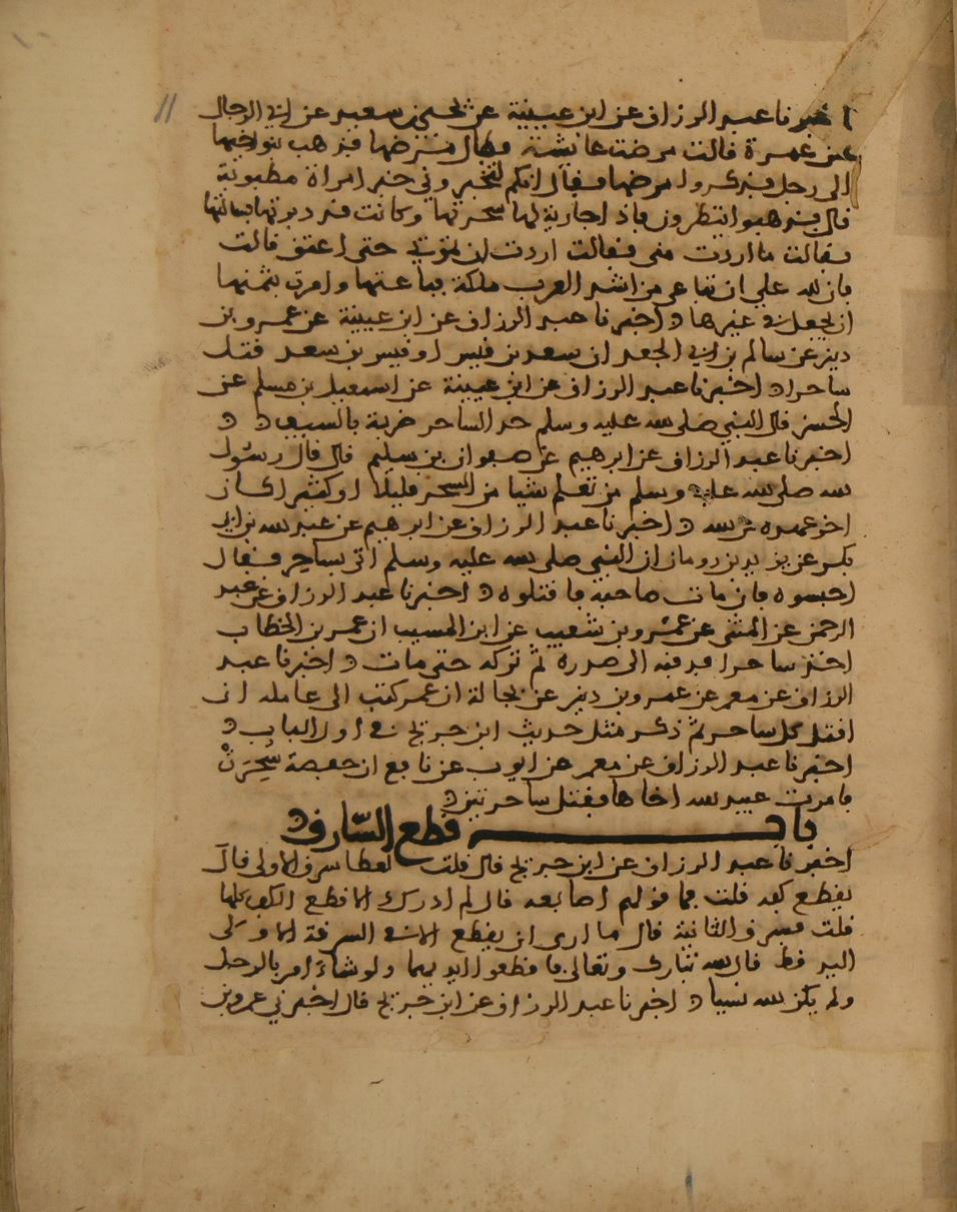 اخبرنا عبد الرزاق عن ابن عيينة عن يحيى بن سعيد عن ابي الرجال
عن عمرة قالت مرضت عائشة فطال مرضها فذهب بنو اخيها
الى رجل فذكروا مرضها فقال انكم لتخبروني خبر امراة مطبوبة
قال فذهبوا ينتظرون فاذا جارية لها سحرتها وكانت قد دبرتها فسالتها
فقالت ما اردت مني فقالت اردت ان تموتي حتى اعتق قالت
فان لله علي ان تباعي من اشد العرب ملكة فباعتها وامرت بثمنها
ان يجعل في غيرها اخبرنا عبد الرزاق عن ابن عيينة عن عمرو بن
دينر عن سالم بن ابي الجعد ان سعد بن قيس او قيس بن سعد قتل
ساحرا اخبرنا عبد الرزاق عن ابن عيينة عن اسمعيل بن مسلم عن
الحسن قال النبي صلى الله عليه وسلم حد الساحر ضربة بالسيف
اخبرنا عبد الرزاق عن ابرهيم عن صفوان بن سليم قال قال رسول
الله صلى الله عليه وسلم من تعلم شيا من السحر قليلا او كثيرا كان
اخر عهده من الله اخبرنا عبد الرزاق عن ابرهيم عن عبد الله بن ابي
بكر عن يزيد بن رومان ان النبي صلى الله عليه وسلم اتي بساحر فقال
احبسوه فان مات صاحبه فاقتلوه اخبرنا عبد الرزاق عن عبد
الرحمن عن المثنى عن عمرو بن شعيب عن ابن المسيب ان عمر بن الخطاب
اخذ ساحرا فدفنه الى صدره ثم تركه حتى مات اخبرنا عبد
الرزاق عن معمر عن عمرو بن دينر عن بجالة ان عمر كتب الى عامله ان
اقتل كل ساحر ثم ذكر مثل حديث ابن جريج في اول الباب
اخبرنا عبد الرزاق عن معمر عن ايوب عن نافع ان حفصة سحرت
فامرت عبيد الله اخاها فقتل ساحرتين
باب قطع السارق
اخبرنا عبد الرزاق عن ابن جريج قال قلت لعطا سرق الاولى قال
يقطع كفه قلت فما قولهم اصابعه قال لم ادرك الا قطع الكف كلها
قلت فسرق الثانية قال ما ارى ان يقطع الا في السرقة الاولى
اليد قط قال الله تبارك وتعالى فاقطعوا ايديهما ولو شا امر بالرجل
ولم يكن الله نسيا اخبرنا عبد الرزاق عن ابن جريج قال اخبرني عمرو بن